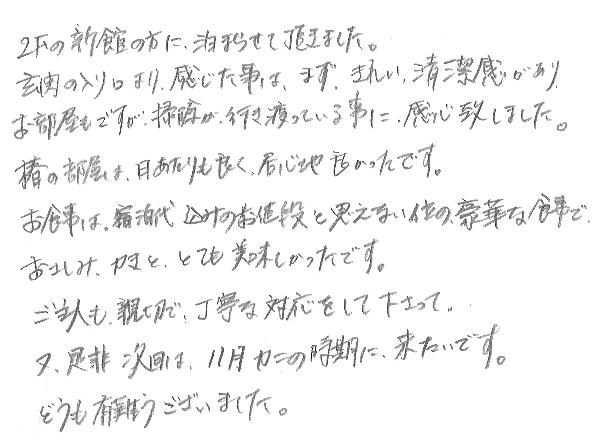 2Fの新館の方に、泊まらせて頂きました。
玄関の入り口より、感じた事は、まず、きれい、清潔感があり、
お部屋もですが、掃除が、行き渡っている事に、感心致しました。
椿の部屋は、日あたりも良く、居心地良かったです。
お食事は、宿泊代込みのお値段と思えない位の、豪華な食事で、
おさしみ、カキと、とても美味しかったです。
ご主人も、親切で、丁寧な対応をして下さって、
又、是非次回は、11月カニの時期に、来たいです。
どうも有難うございました。